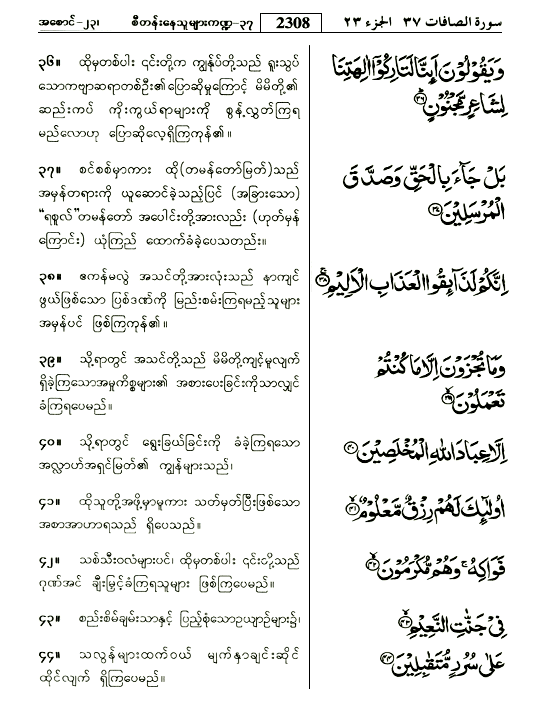 အစောင်-၂၃၊ စီတန်းနေသူများကဏ္ဍ-၃၇ 2308 سورة الصافات ٣٧ الجزء ٢٣
၃၆။ ထိုမှတစ်ပါး ၎င်းတို့က ကျွန်ုပ်တို့သည် ရူးသွပ်
သောကဗျာဆရာတစ်ဦး၏ပြောဆိုမှုကြောင့် မိမိတို့၏
ဆည်းကပ် ကိုးကွယ်ရာများကို စွန့်လွှတ်ကြရ
မည်လောဟု ပြောဆိုလေ့ရှိကြကုန်၏။
وَيَقُوْلُوْنَ اَىِٕنَّا لَتَارِكُوْٓا اٰلِهَتِنَا
لِشَاعِرٍ مَّجْنُوْنٍ
၃၇။ စင်စစ်မှာကား ထို(တမန်တော်မြတ်)သည်
အမှန်တရားကို ယူဆောင်ခဲ့သည့်ပြင် (အခြားသော)
“ရစူလ်”တမန်တော် အပေါင်းတို့အားလည်း (ဟုတ်မှန်
ကြောင်း) ယုံကြည် ထောက်ခံခဲ့ပေသတည်း။
بَلْ جَآءَ بِالْحَقِّ وَصَدَّقَ
الْمُرْسَلِيْنَ
၃၈။ ဧကန်မလွဲ အသင်တို့အားလုံးသည် နာကျင်
ဖွယ်ဖြစ်သော ပြစ်ဒဏ်ကို မြည်းစမ်းကြရမည့်သူများ
အမှန်ပင် ဖြစ်ကြကုန်၏။
اِنَّكُمْ لَذَآىِٕقُوا الْعَذَابِ الْاَلِيْمِ
၃၉။ သို့ရာတွင် အသင်တို့သည် မိမိတို့ကျင့်မူလျက်
ရှိခဲ့ကြသောအမှုကိစ္စများ၏ အစားပေးခြင်းကိုသာလျှင်
ခံကြရပေမည်။
وَمَا تُجْزَوْنَ اِلَّا مَا كُنْتُمْ
تَعْمَلُوْنَ
၄၀။ သို့ရာတွင် ရွေးခြယ်ခြင်းကို ခံခဲ့ကြရသော
အလ္လာဟ်အရှင်မြတ်၏ ကျွန်များသည်၊
اِلَّا عِبَادَ اللّٰهِ الْمُخْلَصِيْنَ
၄၁။ ထိုသူတို့အဖို့မှာမူကား သတ်မှတ်ပြီးဖြစ်သော
အစာအာဟာရသည် ရှိပေသည်။
اُولٰٓىِٕكَ لَهُمْ رِزْقٌ مَّعْلُوْمٌ
၄၂။ သစ်သီးဝလံများပင်၊ ထိုမှတစ်ပါး ၎င်းတို့သည်
ဂုဏ်အင် ချီးမြှင့်ခံကြရသူများ ဖြစ်ကြပေမည်။
فَوَاكِهُ ۚ وَهُمْ مُّكْرَمُوْنَ
၄၃။ စည်းစိမ်ချမ်းသာနှင့် ပြည့်စုံသောဥယျာဉ်များ၌၊
فِيْ جَنّٰتِ النَّعِيْمِ
၄၄။ သလွန်များထက်ဝယ် မျက်နှာချင်းဆိုင်
ထိုင်လျက် ရှိကြပေမည်။
عَلٰى سُرُرٍ مُّتَقٰبِلِيْنَ